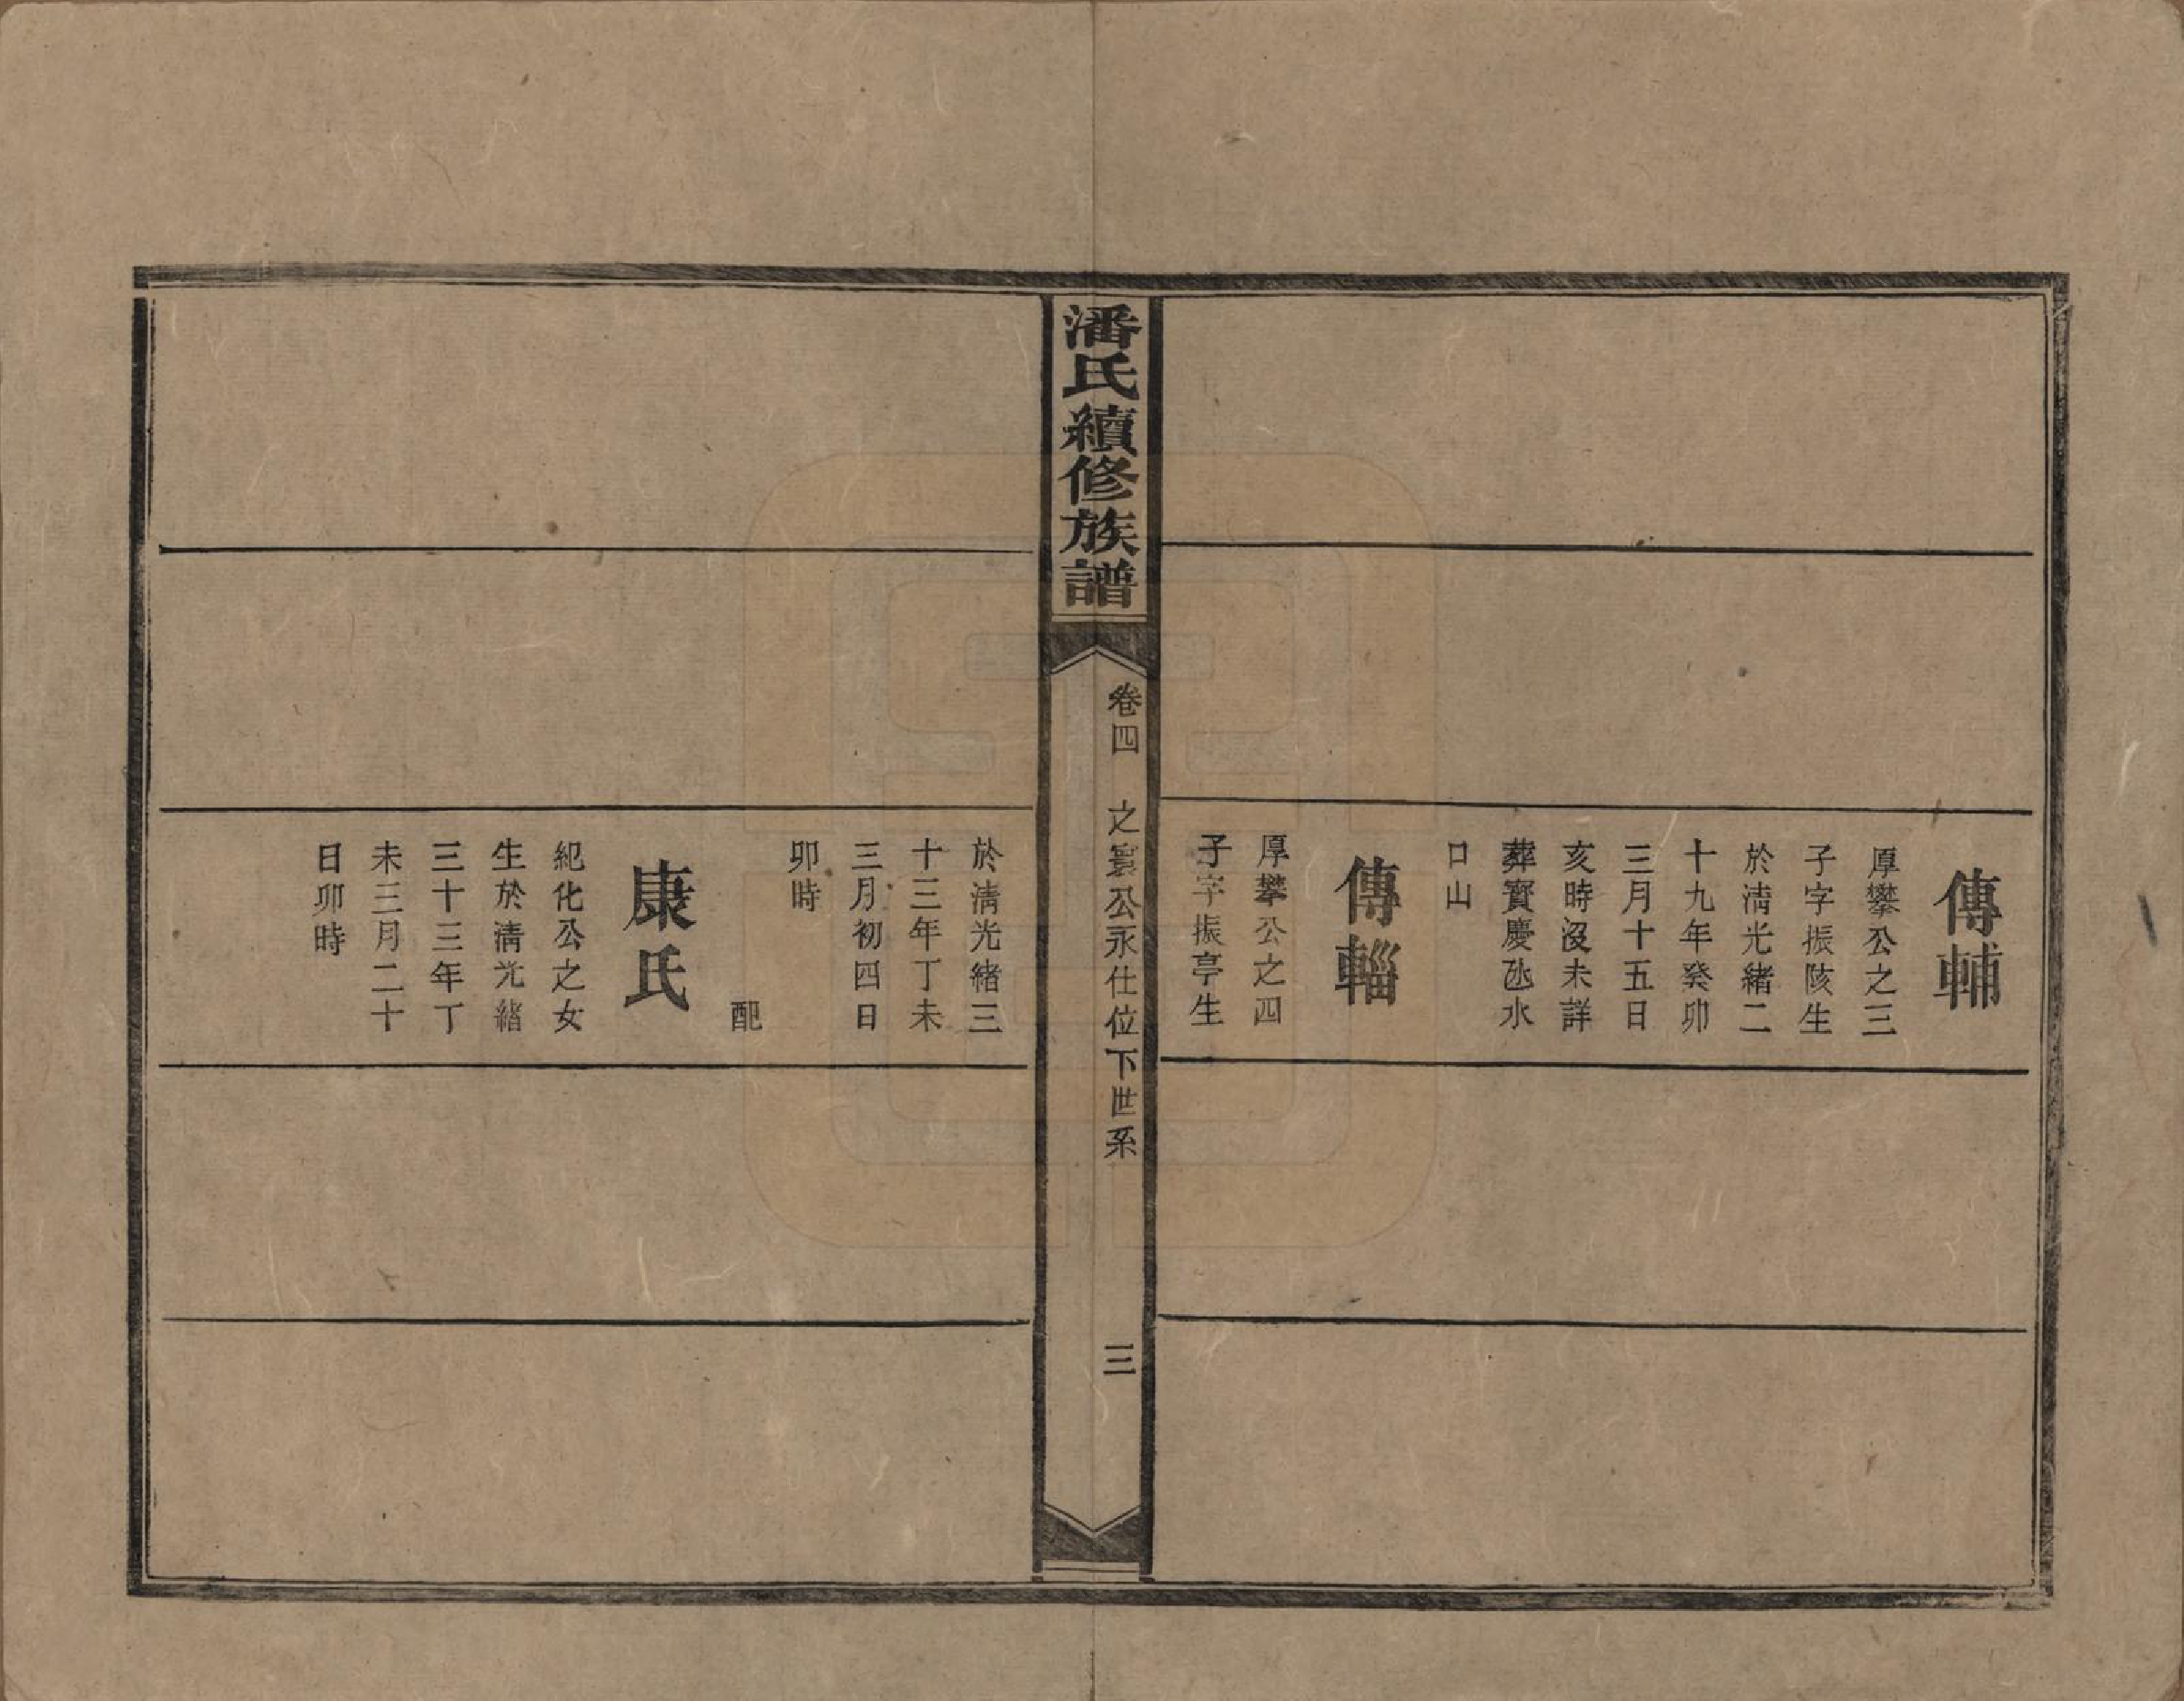 傳輔
厚攀公之三
子字振陔生
於淸光緒二
十九年癸卯
三月十五日
亥時沒未詳
葬寳慶氹水
口山
傳輜
厚攀公之四
子字振亭生
潘氏續修族譜
卷四 之寰公永仕位下世系
三
於淸光緒三
十三年丁未
三月初四日
卯時
配
康氏
紀化公之女
生於淸光緒
三十三年丁
未三月二十
日卯時